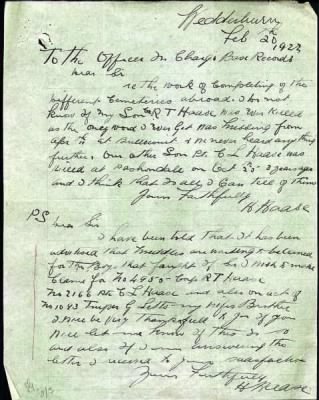 Wedderburn
Feb 20th 1922
To the Officer In Charge Base Records
Dear Sir
re the work of Completing of the
Different Cemeteries abroad I do not
know if my Son R T Haase was Killed
as the only word I Ever Got was Missing from
at Bullecourt & never heard anything
further. Our other Son Pte C L Haase was
Killed at Pashondale on Oct
and I think that is all I Can tell of them
Yours Faithfully
H Haase
PS Dear Sir
I have been told that It has been
advised that Medals are waiting to be Claimed
for the Boys that fought I wish to make
Claims for No 4455 R T Haase
No 2166 Pte C L Haase and also on act of
No 1043 Trooper G Letts my Wifes Brother
I will be Very thankfull to you if you
will let me know if this Is so
and also if I am answering the
letter I received to your satisfaction
Yours Faithfully
H Haase